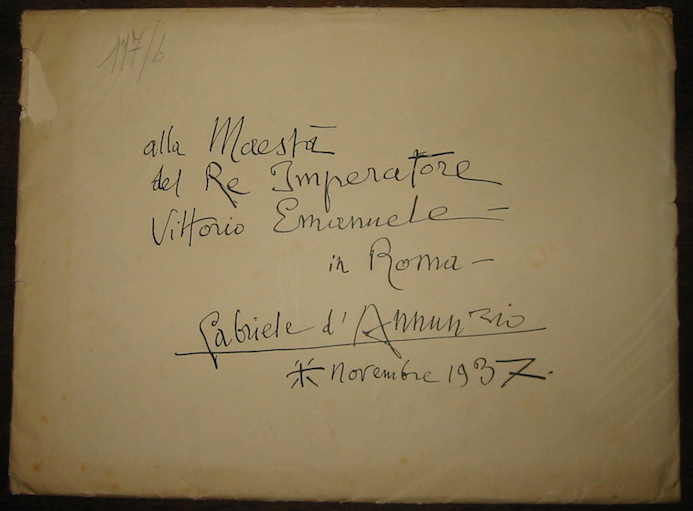 117/b
alla Maestà
del Re Imperatore
Vittorio Emanuele –
in Roma –
Gabriele d'Annunzio
* novembre 1937.